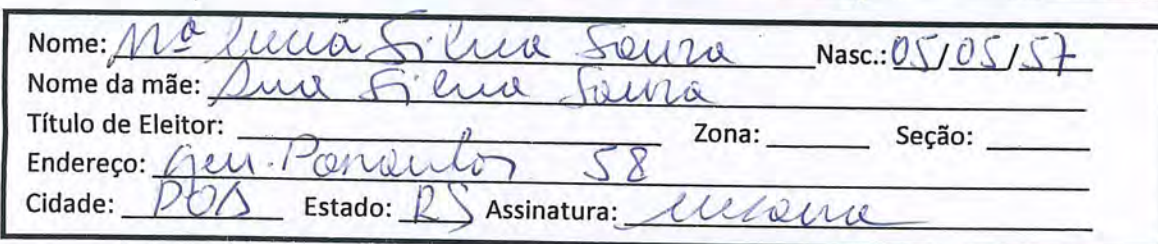 Nome: Mª Lucia Silva Souza Nasc.: 05/05/57
Nome da mãe: Ana Silva Souza
Título de Eleitor: Zona: Seção:
Endereço: Gen. 58
Cidade: POA Estado: RS Assinatura: